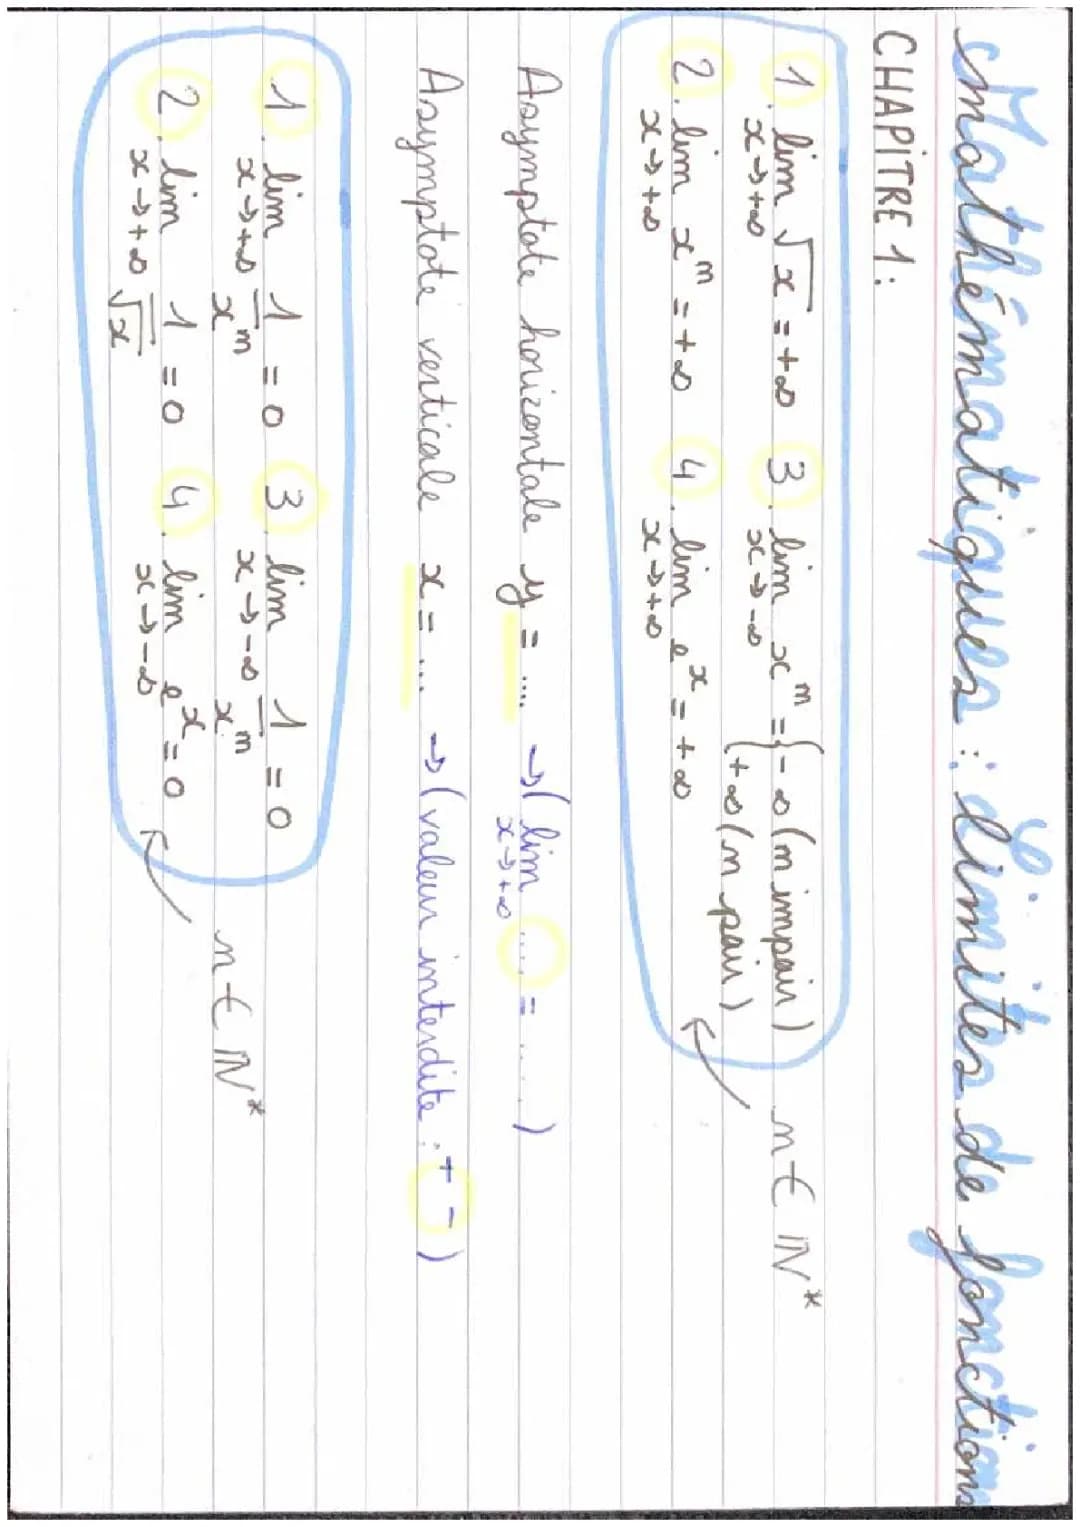 Mathématiques : Limites de fonctions
CHAPITRE 1 :
1. lim √x = +∞ 3. lim xⁿ = { -∞ (n impair) n ∈ ℕ*
x→+∞ x→-∞ { +∞ (n pair)
2. lim xⁿ = +∞ 4. lim eˣ = +∞
x→+∞ x→+∞
Asymptote horizontale y = ... → ( lim .... = ..... )
x→+∞
Asymptote verticale x = ... → (valeur interdite : + -)
1. lim 1/xⁿ = 0 3. lim 1/xⁿ = 0
x→+∞ x→-∞ n ∈ ℕ*
2. lim 1/√x = 0 4. lim eˣ = 0
x→+∞ x→-∞